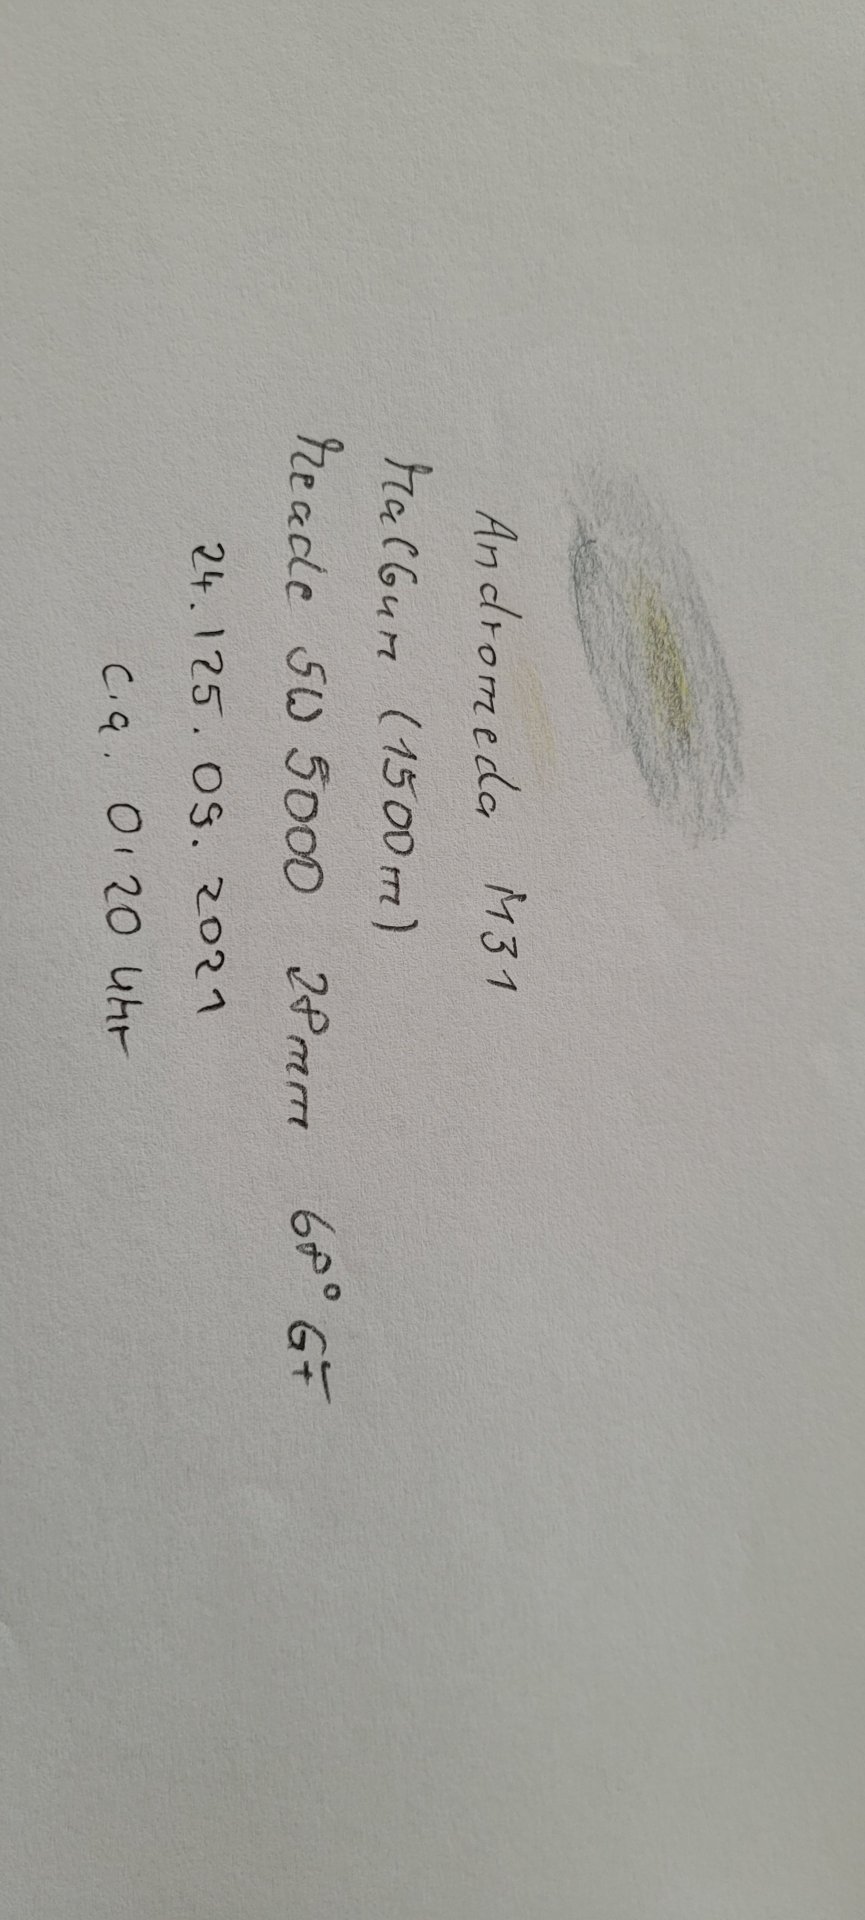 Andromeda M31
Malbun (1500m)
Meade SW 5000 28mm 68° GF
24.125.09.2021
c.a. 0:20 Uhr